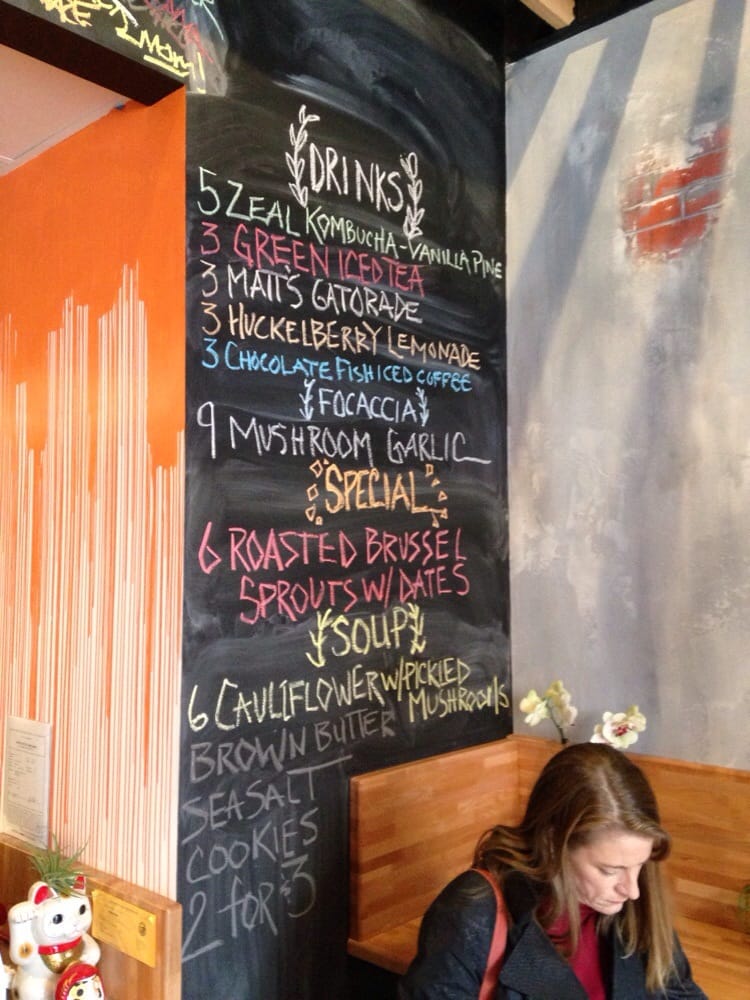 2 Mom!
DRINKS
5 ZEAL KOMBUCHA-VANILLA PINE
3 GREEN ICED TEA
3 MATT'S GATORADE
3 HUCKELBERRY LEMONADE
3 CHOCOLATE FISH ICED COFFEE
FOCACCIA
9 MUSHROOM GARLIC
SPECIAL
6 ROASTED BRUSSEL
SPROUTS W/ DATES
SOUP
6 CAULIFLOWER W/ PICKLED
MUSHROOMS
BROWN BUTTER
SEA SALT
COOKIES
2 for $3